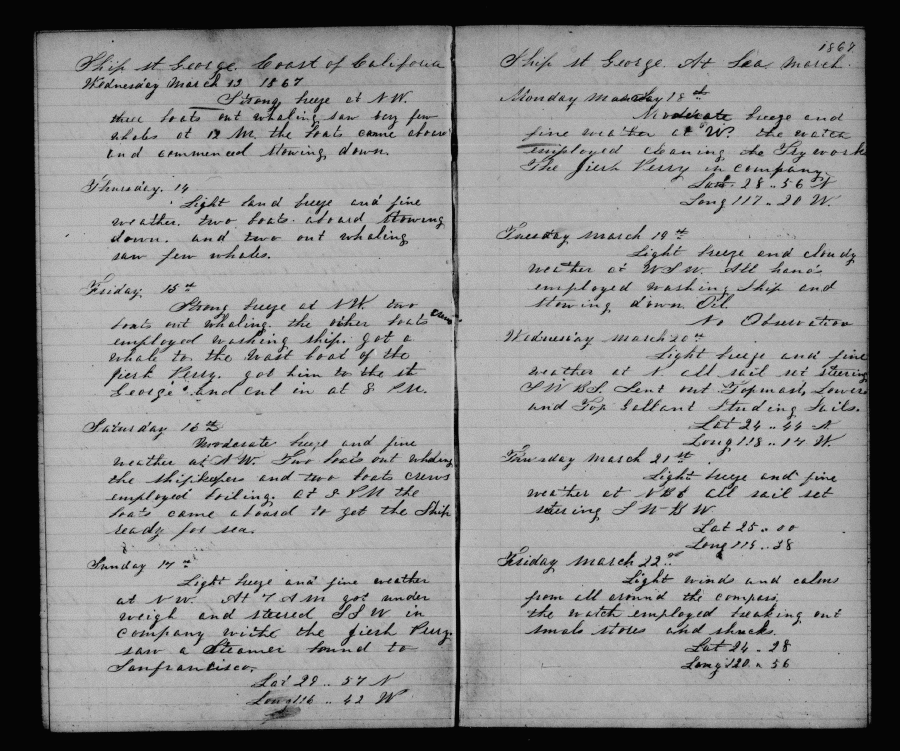 Ship St George. Coast of California
Wednesday March 13 1867
Strong breeze at NW.
three boats out whaling saw very few
whales at 12 M. the boats came aboard
and commenced stowing down.
Thursday. 14
Light land breeze and fine
weather. two boats aboard stowing
down. and two out whaling
saw few whales.
Friday 15th
Strong breeze at NW. two
boats out whaling. the other boats crews
employed washing ship. got a
whale to the wast boat of the
Jierh Perry. got him to the St
George and cut in at 8 PM.
Saturday 16th
Moderate breeze and fine
weather at NW. Two boats out whaling
the shipkeepers and two boats crews
employed boiling. at 2 PM the
boats came aboard to get the Ship
ready for sea.
Sunday 17th
Light breeze and fine weather
at NW. At 7 AM got under
weigh and steered SSW in
company withe the Jierh Perry.
saw a Steamer bound to
Sanfrancisco.
Lat 29 .. 57 N
Long 116 .. 42 W
1867
Ship St George. At Sea March.
Monday March 18th
Moderate breeze and
fine weather at W. the watch
employed cleaning the Tryworks
The Jierh Perry in company.
Lat. 28 .. 56 N
Long 117 .. 20 W.
Tuesday March 19th
Light breeze and cloudy
weather at WSW. All hands
employed washing Ship and
stowing down Oil.
No Observation
Wednesday March 20th
Light breeze and fine
weather at N all sail set steering
SWBS Sent out Topmast, Lower
and Top Gallant Studing Sails.
Lat 24 .. 44 N
Long 118 .. 17 W
Thursday March 21st
Light breeze and fine
weather at NBE all sail set
steering SWBW
Lat 25 .. 00
Long 119 .. 38
Friday March 22nd
Light winds and calms
from all around the compass.
the watch employed breaking out
smals stores and shucks.
Lat 24 .. 28
Long 120 .. 56